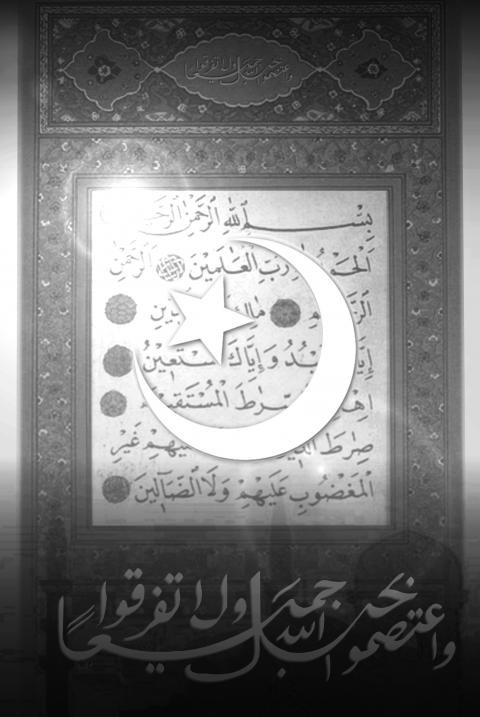 واعتصموا بحبل الله جميعا ولا تفرقوا
بِسْمِ اللهِ الرَّحْمٰنِ الرَّحِيمِ
رَبِّ الْعَالَمِينَ الرَّحْمٰنِ
وَإِيَّاكَ نَسْتَعِينُ
الْمُسْتَقِيمَ
صِرَاطَ غَيْرِ
الْمَغْضُوبِ عَلَيْهِمْ وَلَا الضَّالِّينَ
واعتصموا بحبل الله جميعًا ولا تفرقوا